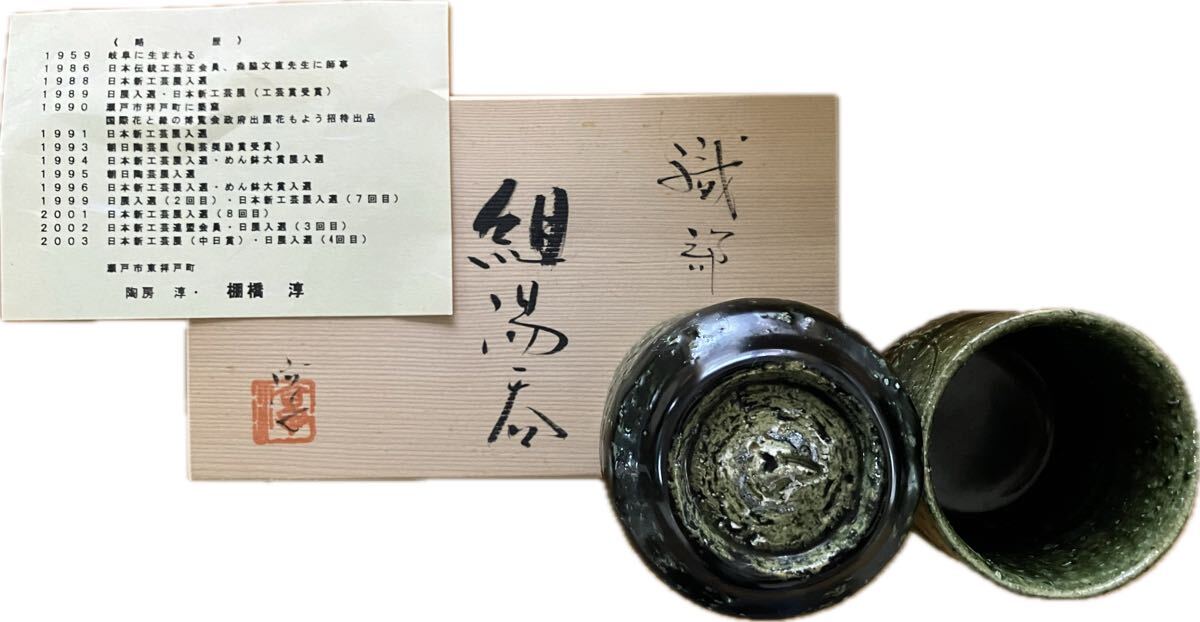 (略 歴)
1959 岐阜に生まれる
1986 日本伝統工芸正会員、森脇文直先生に師事
1988 日本新工芸展入選
1989 日展入選・日本新工芸展(工芸賞受賞)
1990 瀬戸市拝戸町に築窯
国際花と緑の博覧会政府出展花もよう招待出品
1991 日本新工芸展入選
1993 朝日陶芸展(陶芸奨励賞受賞)
1994 日本新工芸展入選・めん鉢大賞展入選
1995 朝日陶芸展入選
1996 日本新工芸展入選・めん鉢大賞入選
1999 日展入選(2回目)・日本新工芸展入選(7回目)
2001 日本新工芸展入選(8回目)
2002 日本新工芸連盟会員・日展入選(3回目)
2003 日本新工芸展(中日賞)・日展入選(4回目)
瀬戸市東拝戸町
陶房 淳・ 棚橋 淳
織部
組湯呑
淳